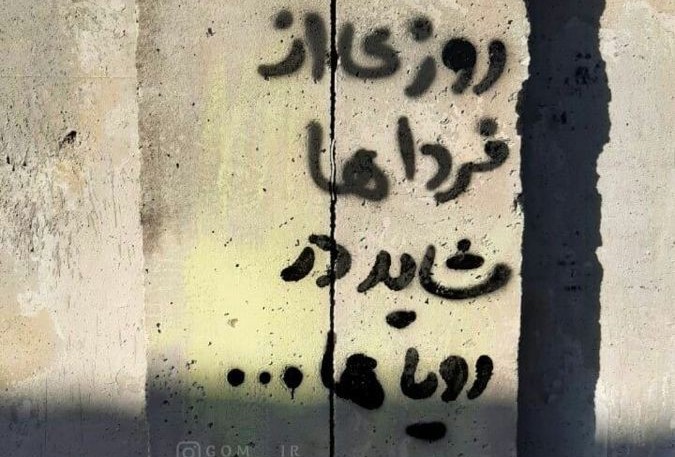 روزی از
فردا ها
شاید در
رویا ها...
GOM_IR